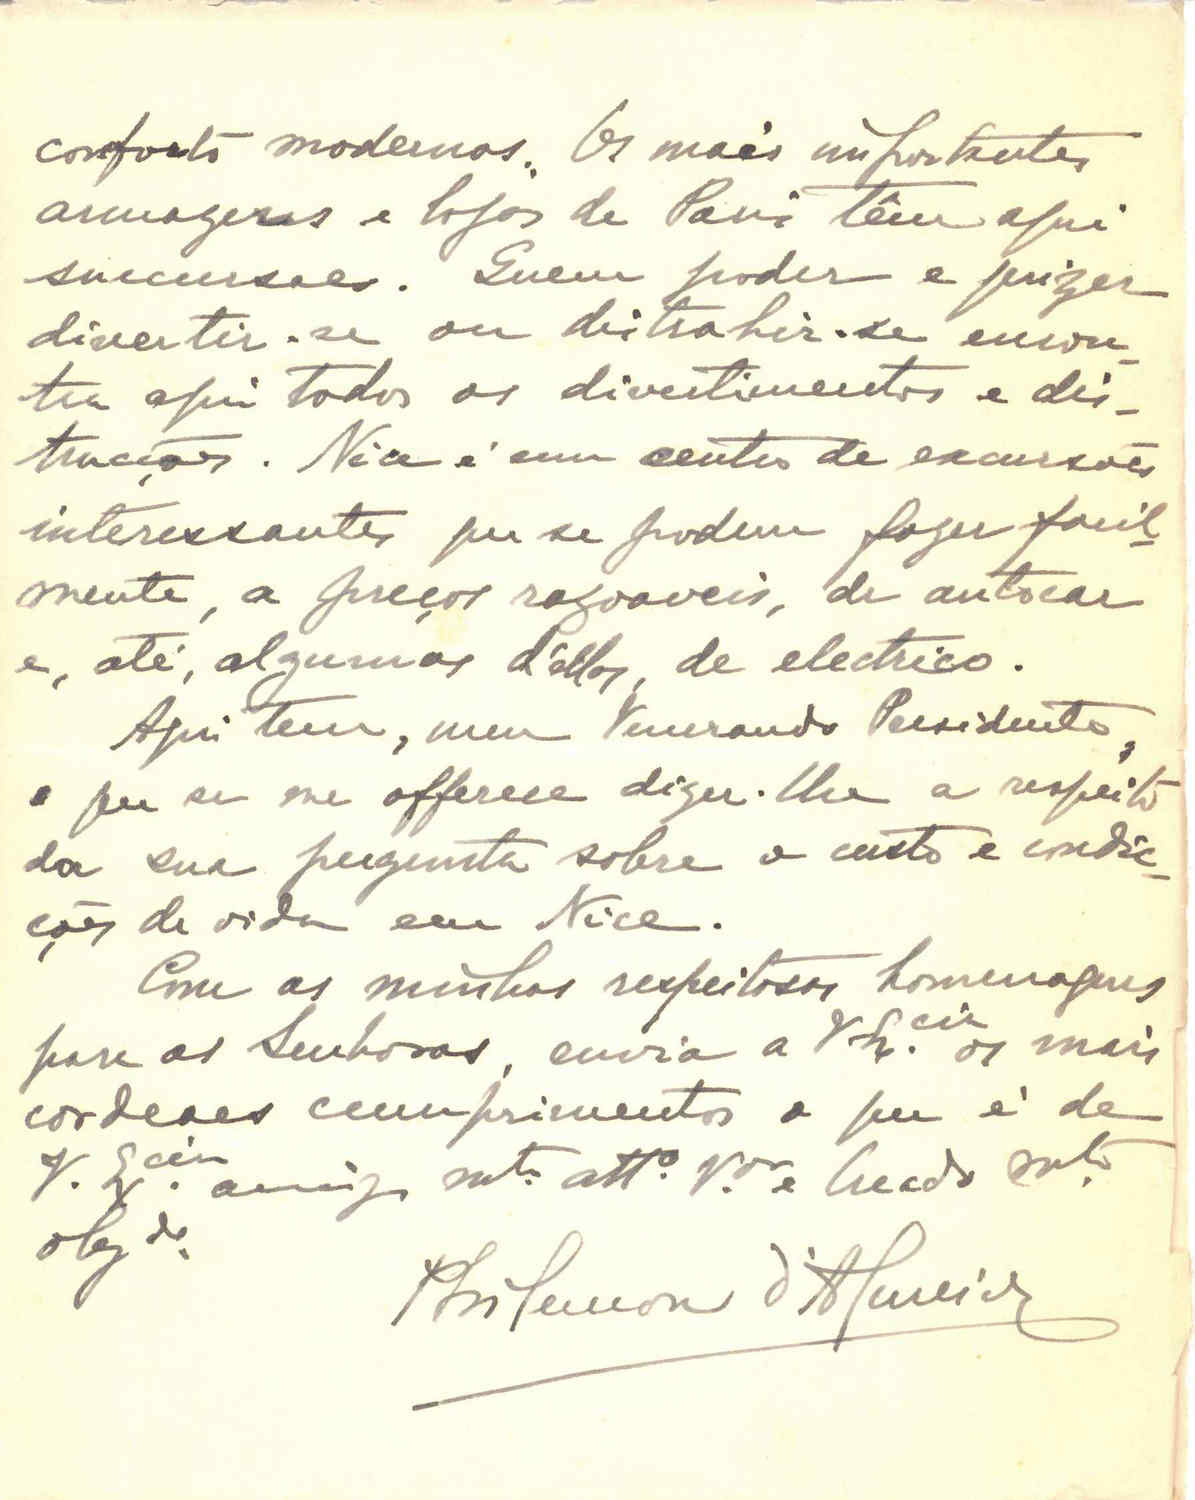 conforto modernos. Os mais importantes
armagens e lojas de Paris têm aqui
succursaes. Quem poder e quizer
divertir-se ou distrahir-se encon-
tra aqui todos os divertimentos e dis-
tracções. Nice é um centro de excursões
interessantes que se podem fazer facil-
mente, a preços razoaveis, de autocar
e, até, algumas d'ellas, de electrico.
Aqui tem, meu Venerando Presidente,
o que se me offerece dizer-lhe a respeito
da sua pergunta sobre o custo e condic-
ções de vida em Nice.
Com as minhas respeitosas homenagens
para as Senhoras, envia a V. Ex.cia os mais
cordeaes cumprimentos o que é de
V. Ex.cia amigo mto. atto. V.or e Creado mto.
obgdo.
Philemon d'Almeida